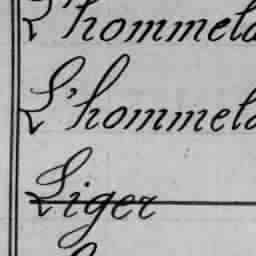 L'hommeld
L'hommeld
Liger